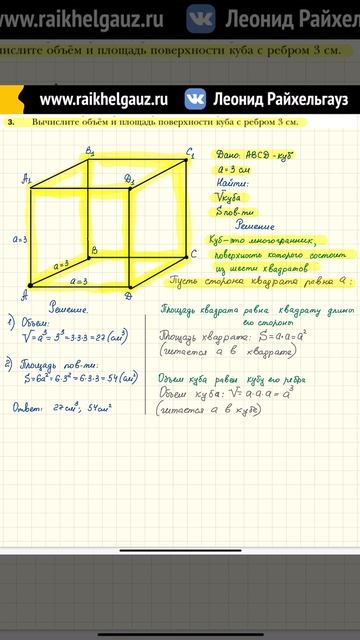 www.raikhelgauz.ru Леонид Райхельгауз
числите объём и площадь поверхности куба с ребром 3 см.
www.raikhelgauz.ru Леонид Райхельгауз
3. Вычислите объём и площадь поверхности куба с ребром 3 см.
B₁
C₁
A₁
D₁
a=3
a=3
B
C
a=3
A
D
Дано: ABCD - куб
a=3 см
Найти:
Vкуба
Sпов-ти
Решение
Куб-это многогранник,
поверхность которого состоит
из шести квадратов
Пусть сторона квадрата равна a:
Решение.
1) Объем:
V=a³=3³=3·3·3=27(см³)
2) Площадь пов-ти:
S=6a²=6·3²=6·3·3=54(см²)
Ответ: 27см³; 54см²
Площадь квадрата равна квадрату длины
его стороны
Площадь квадрата: S=a·a=a²
(читается a в квадрате)
Объем куба равен кубу его ребра
Объем куба: V=a·a·a=a³
(читается a в кубе)
www.raikhelgauz.ru Леонид Райхельгауз